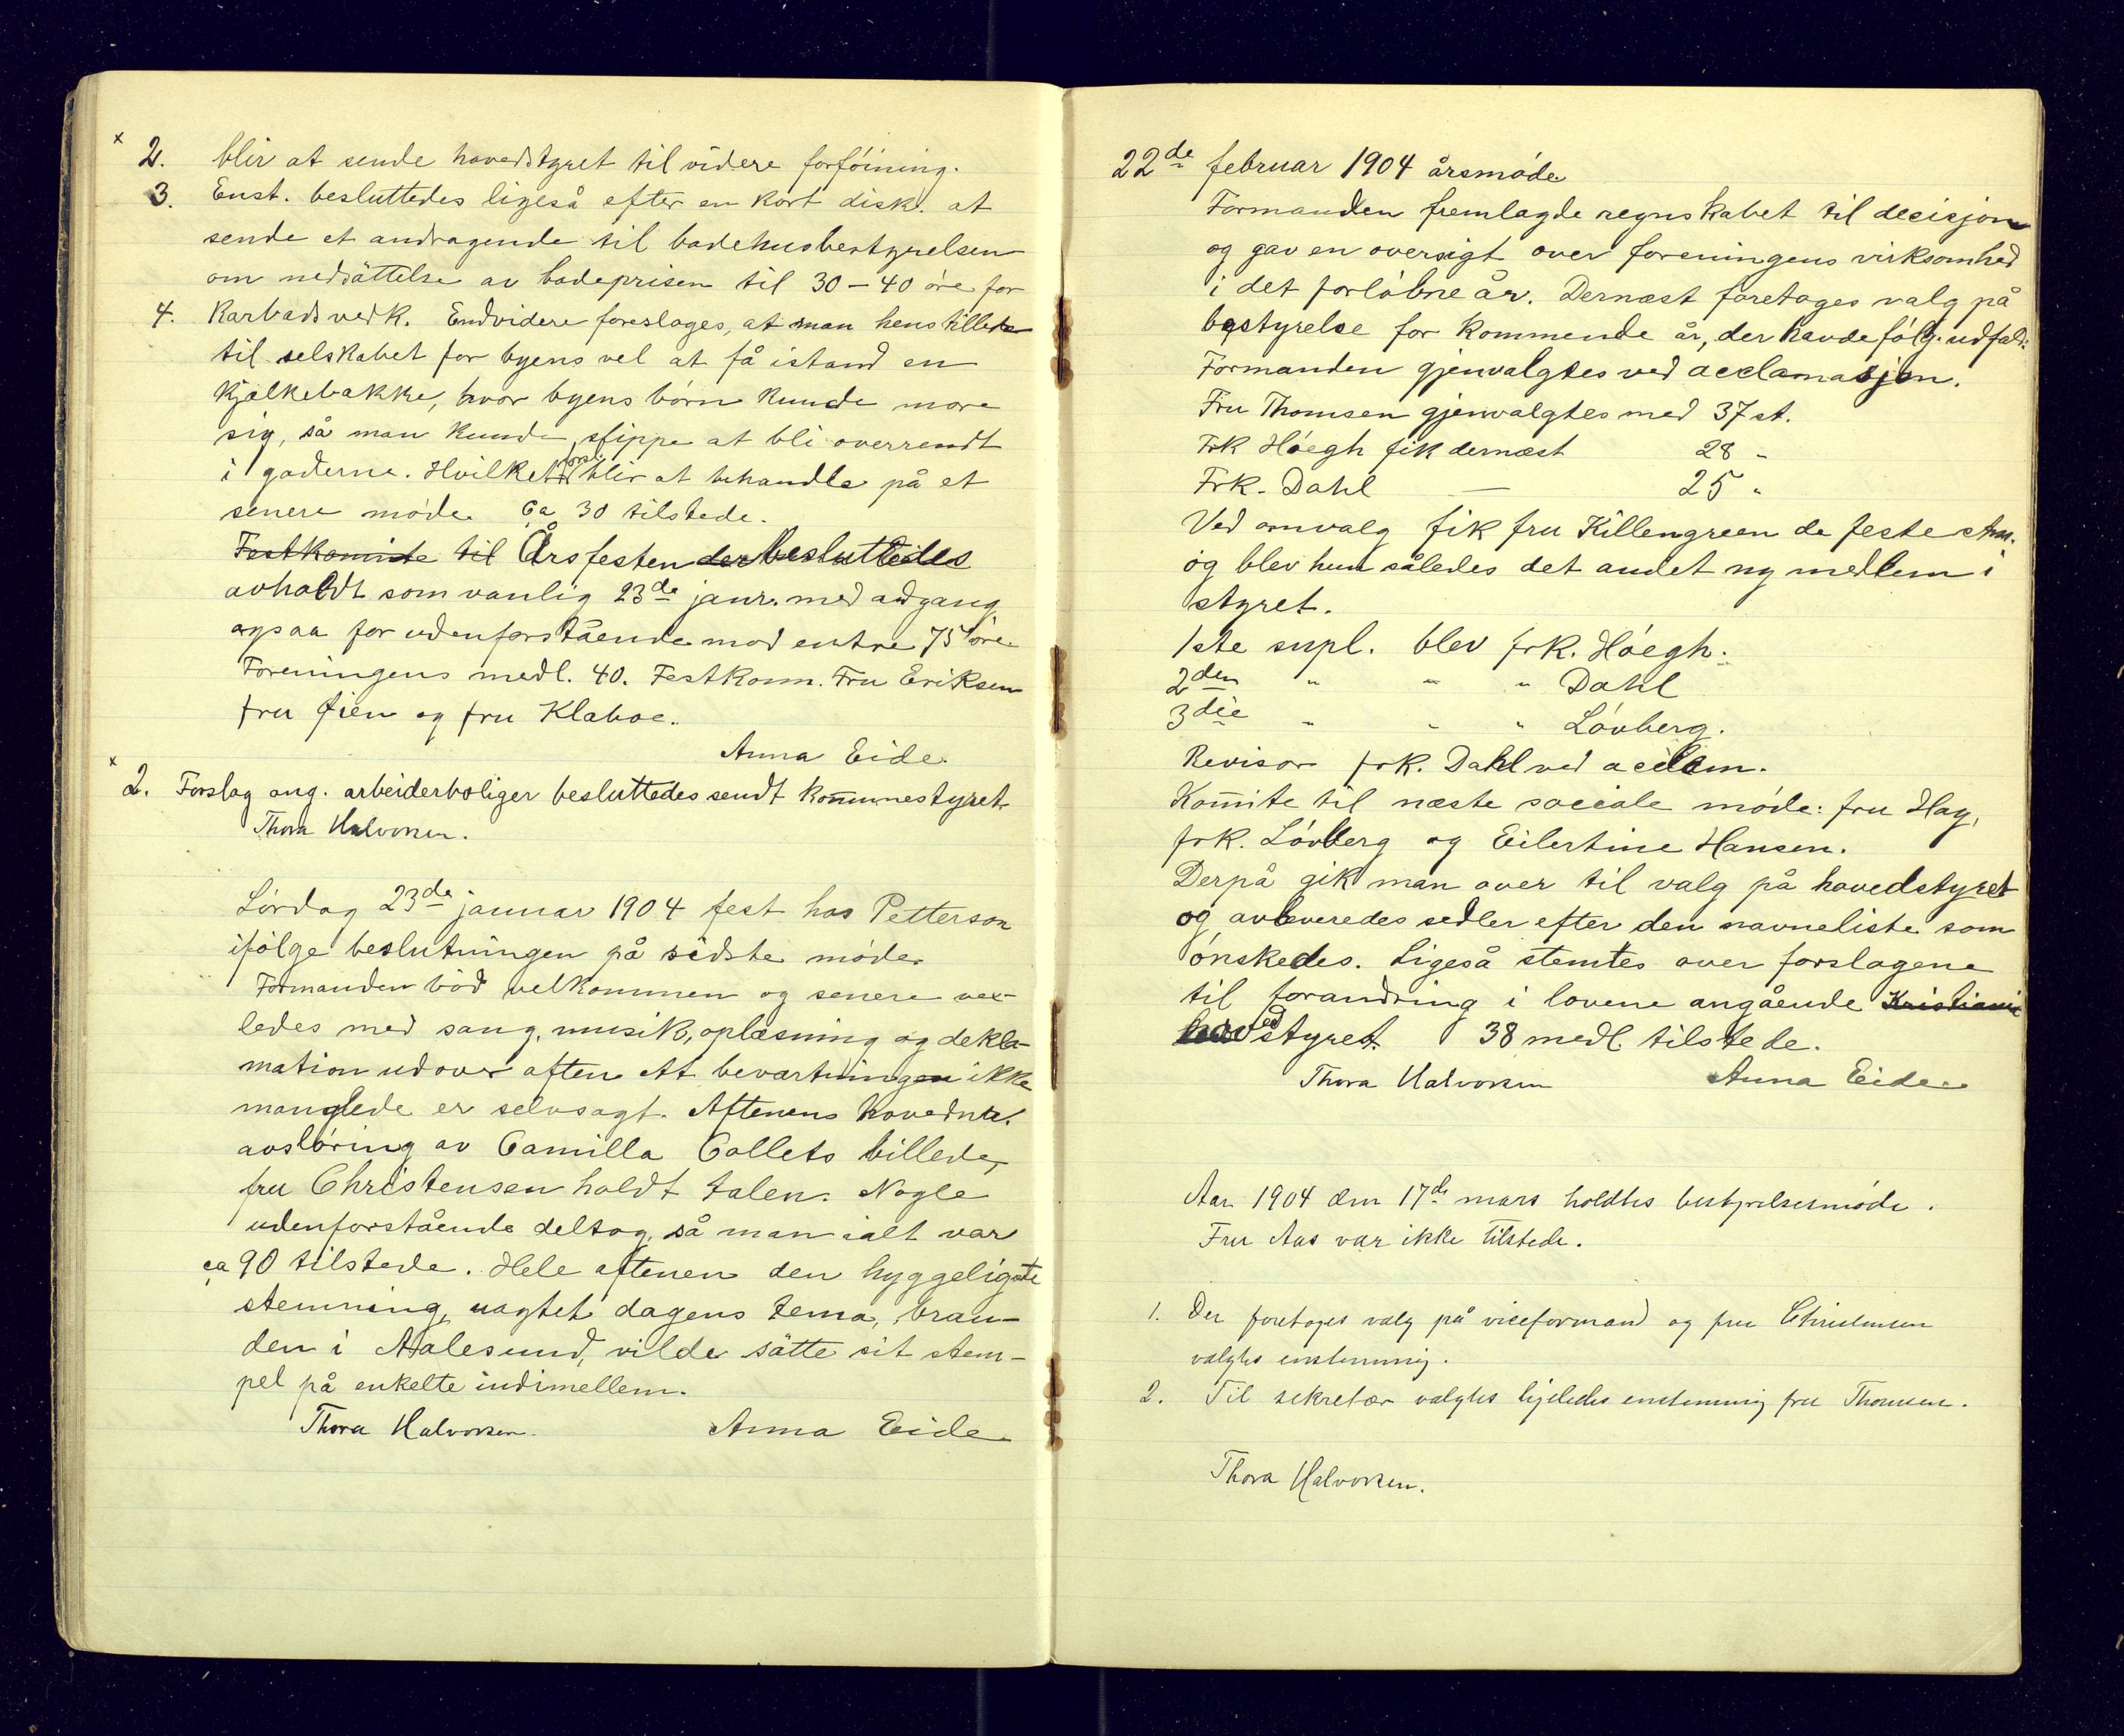 x 2. blir at sende hovedstyret til videre forføining.
3. Enst. besluttedes ligeså efter en kort disk. at
sende et andragende til badehusbestyrelsen
om nedsättelse av badeprisen til 30 – 40 øre for
4. Karbads vedk. Endvidere foreslages, at man henstillede
til selskabet for byens vel at få istand en
Kjælkebakke, hvor byens børn kunde more
sig, så man kunde slippe at bli overrendt
i gaderne. Hvilket forsl. blir at behandle på et
senere møde. Ca 30 tilstede.
Festkomite til Årsfesten der besluttedes
avholdt som vanlig 23de janr. med adgang
ogsaa for udenforstående mod entre 75 øre
Foreningens medl. 40. Festkom. Fru Eriksen
fru Øien og fru Klaboe.
Anna Eide.
x 2. Forslag ang. arbeiderboliger besluttedes sendt kommunestyret
Thora Halvorsen.
Lørdag 23de januar 1904 fest hos Petterson
ifølge beslutningen på sidste møde.
Formanden bød velkommen og senere vex-
ledes med sang, musik, oplæsning og dekla-
mation udover aften. At bevartningen ikke
manglede er selvsagt. Aftenens hovednr.
avsløring av Camilla Collets billede,
fru Christensen holdt talen. Nogle
udenforstående deltog, så man ialt var
ca 90 tilstede. Hele aftenen den hyggeligste
stemning, uagtet dagens tema, bran-
den i Aalesund, vilde sätte sit stem-
pel på enkelte indimellem.
Thora Halvorsen. Anna Eide
22de februar 1904 årsmøde
Formanden fremlagde regnskabet til decisjon
og gav en oversigt over foreningens virksomhed
i det forløbne år. Dernæst foretages valg på
bestyrelse for kommende år, der havde følg. udfald:
Formanden gjenvalgtes ved acclamasjon.
Fru Thomsen gjenvalgtes med 37 st.
Frk Høegh fik dernæst 28 "
Frk. Dahl — 25 "
Ved omvalg fik fru Killengreen de feste stm.
og blev hun således det andet ny medlem i
styret.
1ste supl. blev frk. Høegh.
2den " " " Dahl
3die " " " Løvberg.
Revisor frk. Dahl ved acclam.
Komite til næste sociale møde: fru Hag,
frk. Løvberg og Eilertine Hansen.
Derpå gik man over til valg på hovedstyret
og avleveredes sedler efter den navneliste som
ønskedes. Ligeså stemtes over forslagene
til forandring i lovene angående Kristiania
hovedstyret. 38 medl. tilstede.
Thora Halvorsen Anna Eide
Aar 1904 den 17de mars holdtes bestyrelsesmøde.
Fru Aas var ikke tilstede.
1. Der foretoges valg på viceformand og fru Christensen
valgtes enstemmig.
2. Til sekretær valgtes ligeledes enstemmig fru Thomsen.
Thora Halvorsen.